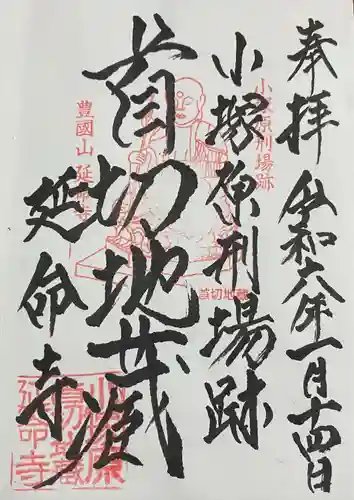 奉拝
令和六年一月十四日
小塚原刑場跡
首切地蔵
延命寺
小塚原刑場跡
豊國山 延命寺
首切地蔵
小塚原
首切地蔵
延命寺